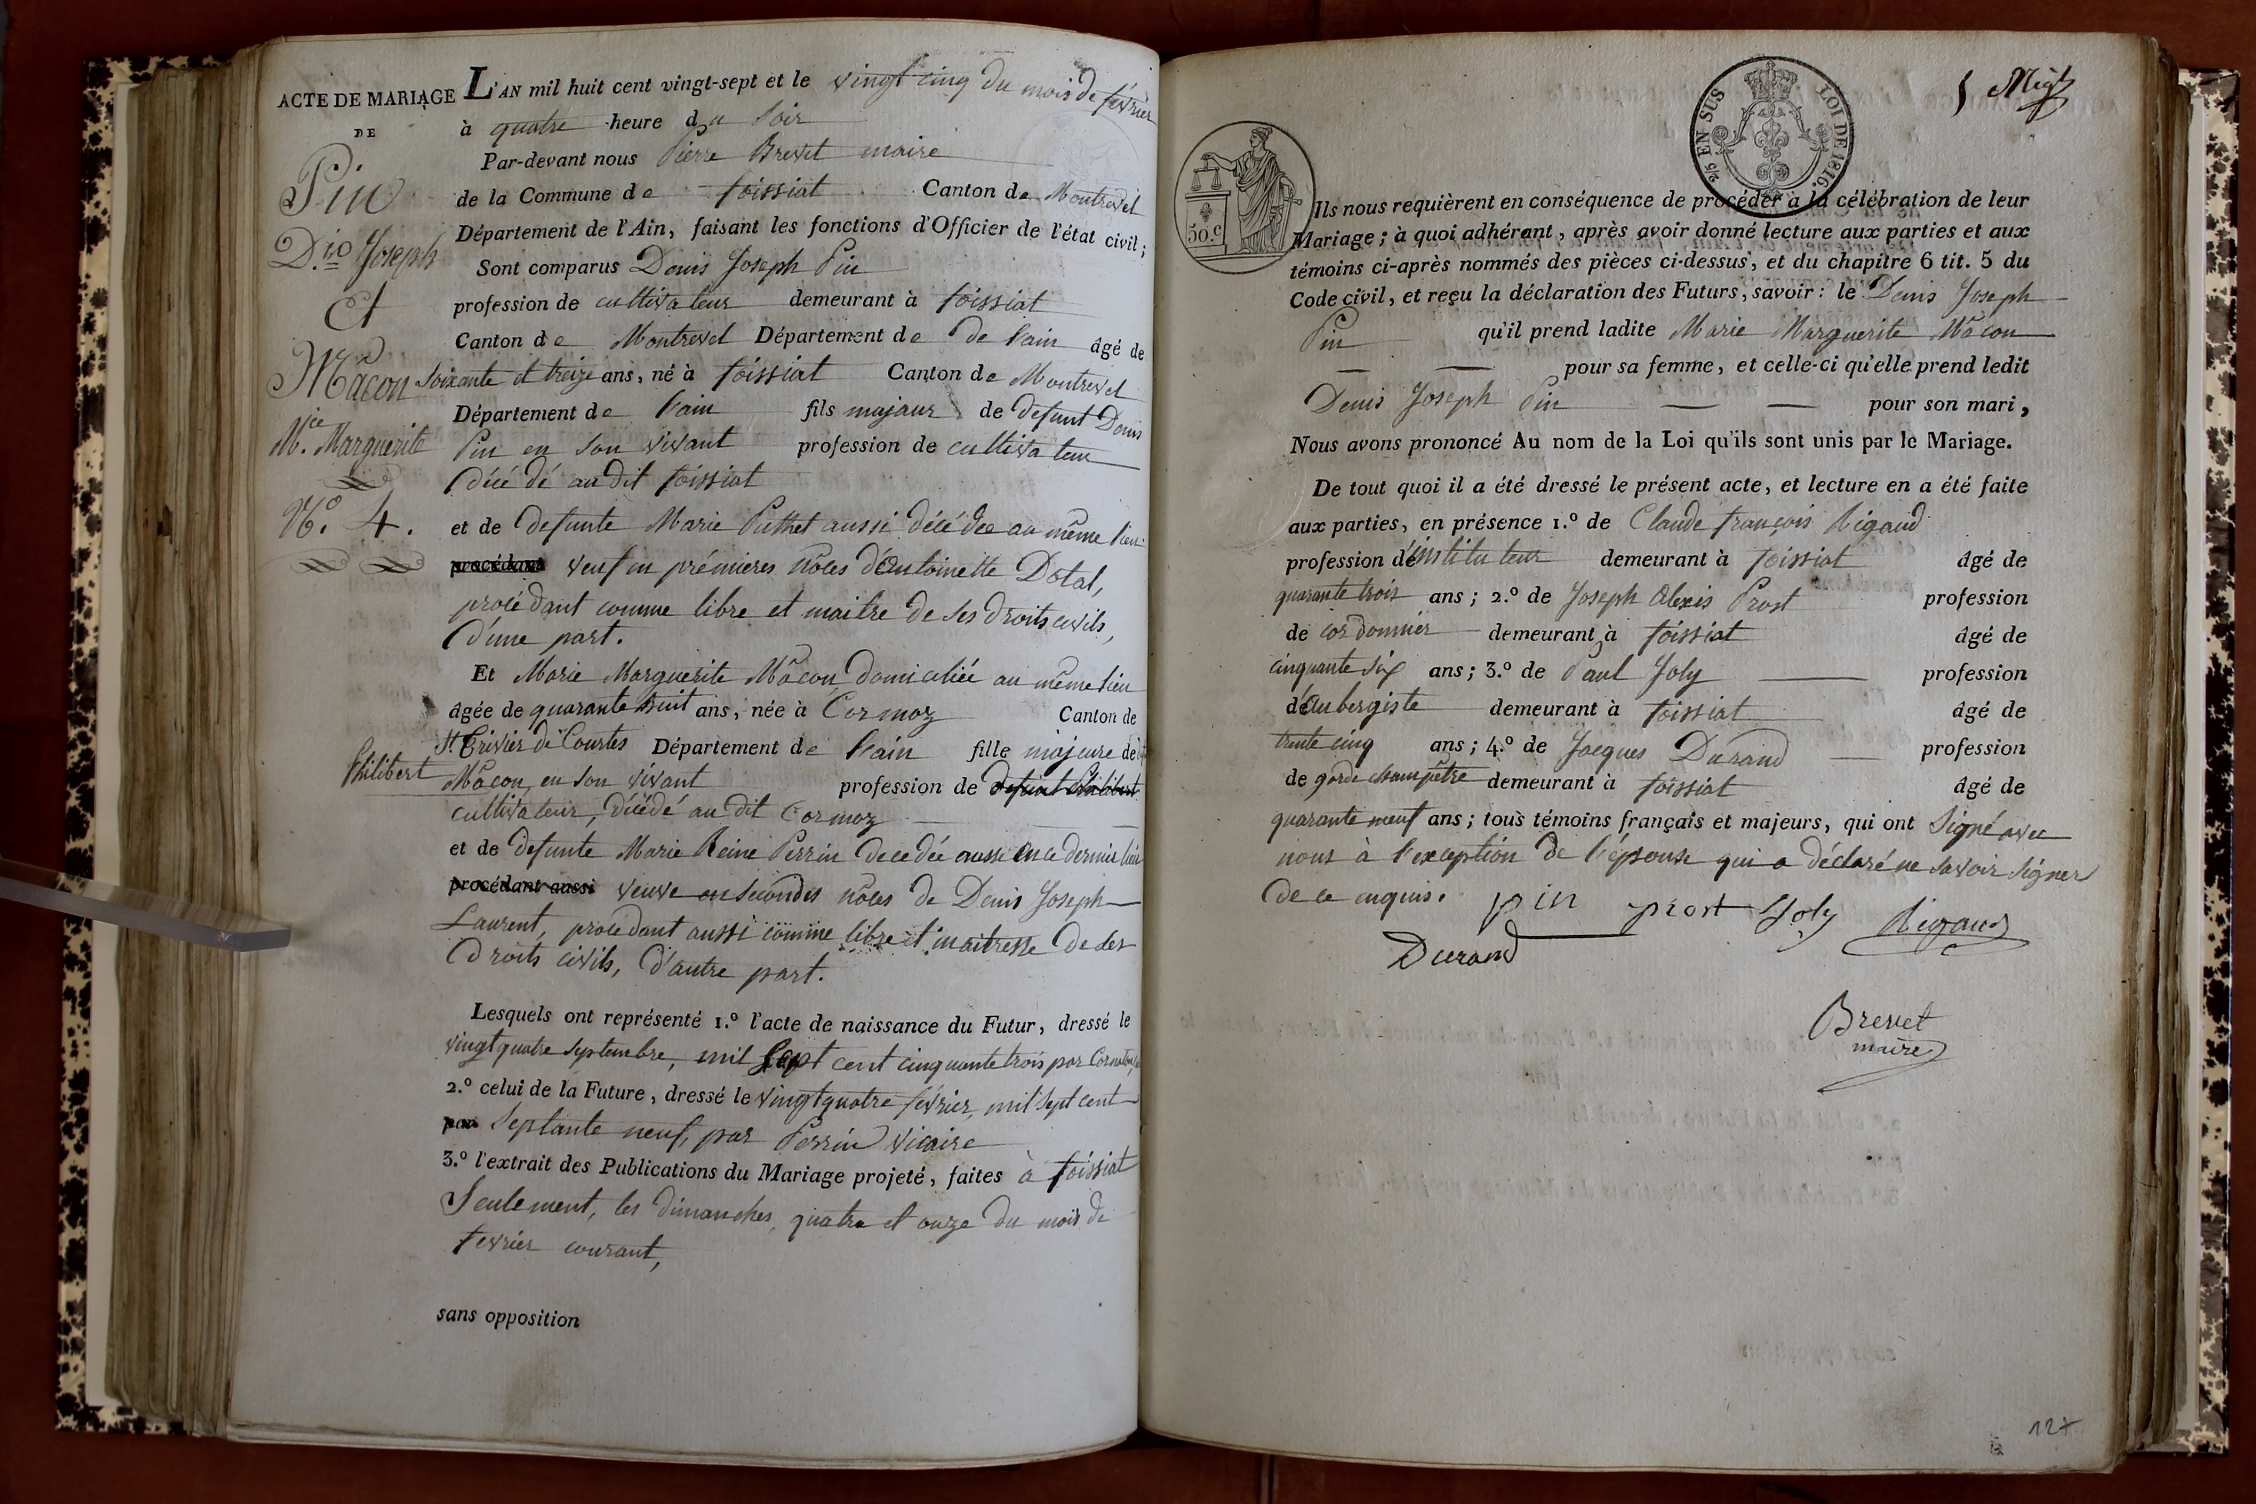 ACTE DE MARIAGE
DE
Pin
D.is Joseph
Et
Mâcon
M.ie Marguerite
N.o 4.
L'AN mil huit cent vingt-sept et le vingt cinq du mois de février
à quatre heure du soir
Par-devant nous Pierre Brevet maire
de la Commune de foissiat Canton de Montrevel
Département de l'Ain, faisant les fonctions d'Officier de l'état civil ;
Sont comparus Denis Joseph Pin
profession de cultivateur demeurant à foissiat
Canton de Montrevel Département de de l'ain âgé de
Soixante et treize ans, né à foissiat Canton de Montrevel
Département de l'ain fils majeur de defunt Denis
Pin en son vivant profession de cultivateur
décédé au dit foissiat
et de defunte Marie Puthet aussi décédée au même lieu
procédant veuf en prémieres nôces d'Antoinette Dotal,
procédant comme libre et maitre de ses droits civils,
d'une part.
Et Marie Marguerite Mâcon, domiciliée au même lieu
âgée de quarante huit ans, née à Cormoz Canton de
St Trivier de Courtes Département de l'ain fille majeure de
Philibert Mâcon, en son vivant profession de defunt Philibert
cultivateur, décédé au dit Cormoz
et de defunte Marie Reine Perrin decedée aussi en ce dernier lieu
procédant aussi veuve en secondes nôces de Denis Joseph
Laurent, procedant aussi comme libre et maitresse de ses
droits civils, d'autre part.
Lesquels ont représenté 1.º l'acte de naissance du Futur, dressé le
vingt quatre septembre, mil sept cent cinquante trois par
2.º celui de la Future, dressé le vingt quatre février, mil sept cent
par septante neuf, par Perrin vicaire
3.º l'extrait des Publications du Mariage projeté, faites à foissiat
Seulement, les dimanches, quatre et onze du mois de
fevrier courant,
sans opposition
50.c
2/5 EN SUS LOI DE 1816.
Ils nous requièrent en conséquence de procéder à la célébration de leur
Mariage ; à quoi adhérant, après avoir donné lecture aux parties et aux
témoins ci-après nommés des pièces ci-dessus, et du chapitre 6 tit. 5 du
Code civil, et reçu la déclaration des Futurs, savoir : le Denis Joseph
Pin qu'il prend ladite Marie Marguerite Mâcon
pour sa femme, et celle-ci qu'elle prend ledit
Denis Joseph Pin pour son mari,
Nous avons prononcé Au nom de la Loi qu'ils sont unis par le Mariage.
De tout quoi il a été dressé le présent acte, et lecture en a été faite
aux parties, en présence 1.º de Claude françois Rigaud
profession d'instituteur demeurant à foissiat âgé de
quarante trois ans ; 2.º de Joseph Alexis Prost profession
de cordonnier demeurant à foissiat âgé de
cinquante six ans ; 3.º de Paul Joly profession
d'aubergiste demeurant à foissiat âgé de
trente cinq ans ; 4.º de Jacques Durand profession
de garde champêtre demeurant à foissiat âgé de
quarante neuf ans ; tous témoins français et majeurs, qui ont signé avec
nous à l'exception de l'épouse qui a déclaré ne savoir signer
de ce enquis. pin prost Joly Rigaud
Durand
Brevet
maire
127